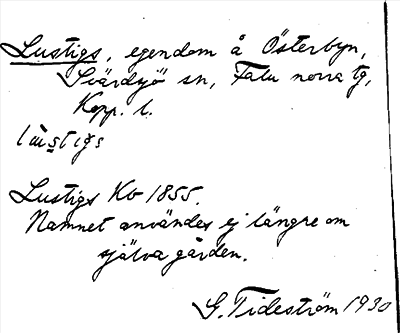 Lustigs, egendom å Österbyn,
Svärdsjö sn, Falu norra tg,
Kopp. l.
lùstigs
Lustigs Kb 1855.
Namnet användes ej längre om
själva gården.
G. Tideström 1930